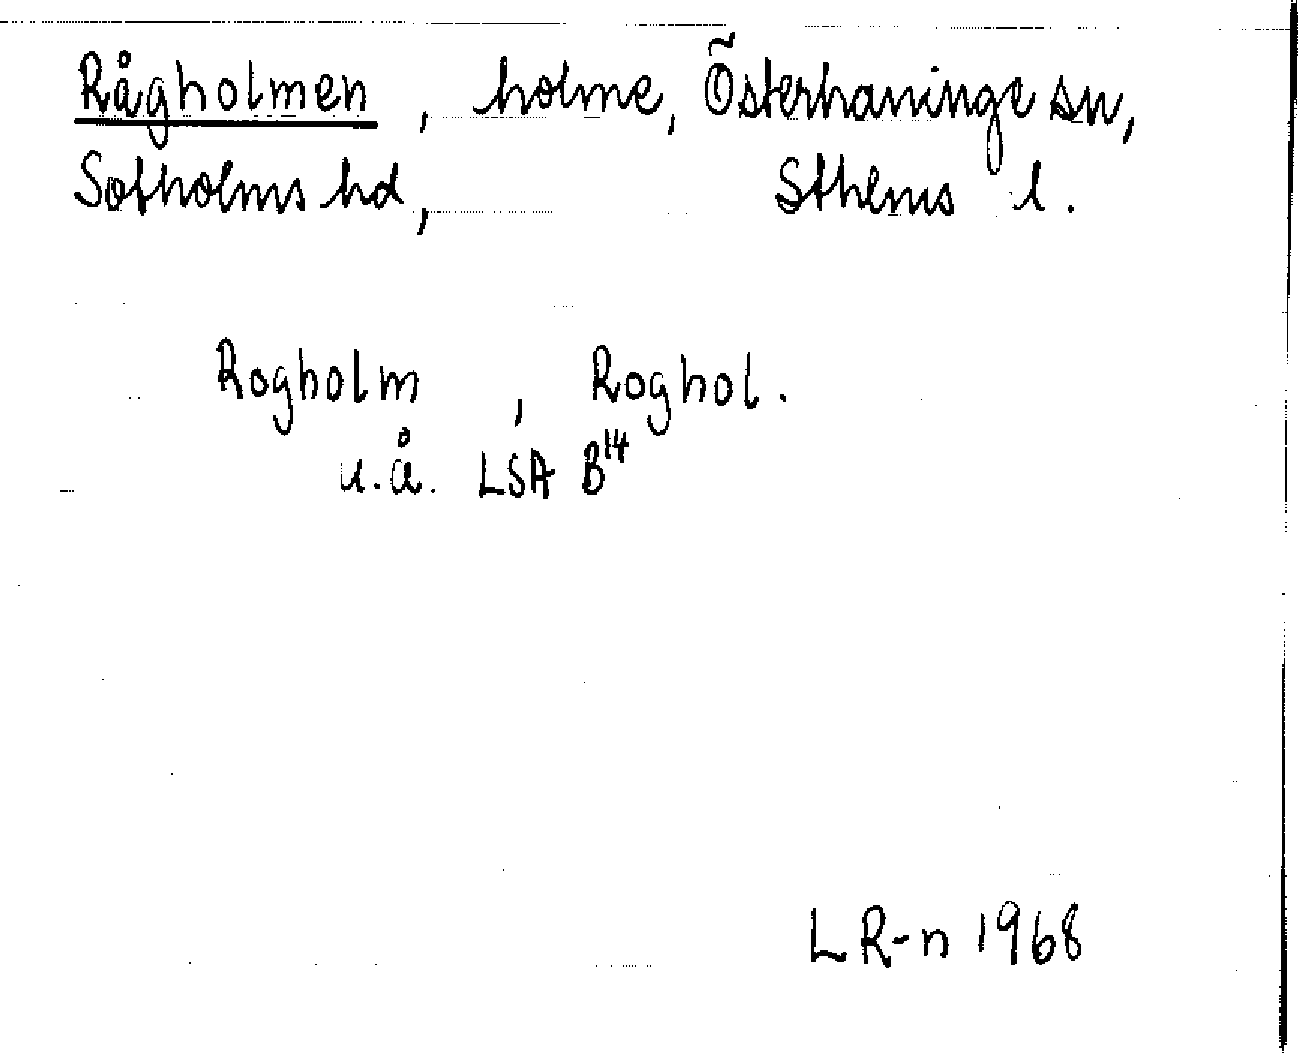 Rågholmen, holme, Österhaninge sn,
Sotholms hd, Sthlms l.
Rogholm, Roghol.
u.å. LSA B¹⁴
LR-n 1968